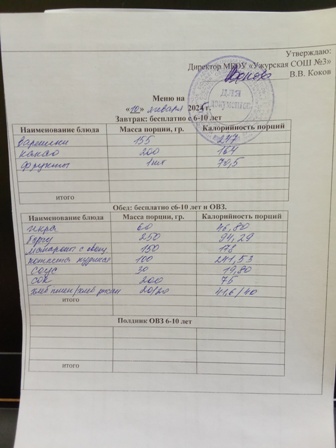 Утверждаю:
Директор МБОУ «Ужурская СОШ №3»
В.В. Коков
для
Меню на
«10» января 2024 г.
Завтрак: бесплатно с 6-10 лет
Наименование блюда Масса порции, гр. Калорийность порций
вареники 155
какао 200
фрукты 1шт 78,5
итого
Обед: бесплатно с6-10 лет и ОВЗ.
Наименование блюда Масса порции, гр. Калорийность порций
икра 60 46,80
борщ 250 94,29
150
котлета 100 241,53
соус 30 19,80
сок 200 76
20/20 41,6/40
итого
Полдник ОВЗ 6-10 лет
итого